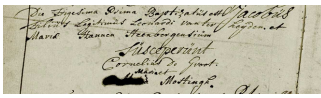 Die Trigesima Prima Baptizatus est Jacobus
filius Legitimus Leonardi van der Leyden, et
Maria Hannen Steenbergensium
Susceperunt
Cornelius de Groot.
Mostingh.